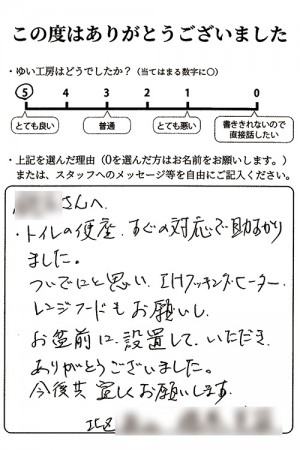 この度はありがとうございました
・ゆい工房はどうでしたか？（当てはまる数字に○）
5 4 3 2 1 0
とても良い 普通 とても悪い 書ききれないので直接話したい
・上記を選んだ理由（0を選んだ方はお名前をお願いします。）
または、スタッフへのメッセージ等を自由にご記入ください。
さんへ
・トイレの便座、すぐの対応で助かり
ました。
ついでにと思い、IHクッキングヒーター、
レンジフードもお願いし、
お盆前に設置していただき
ありがとうございました。
今後共宜しくお願いします。
北区